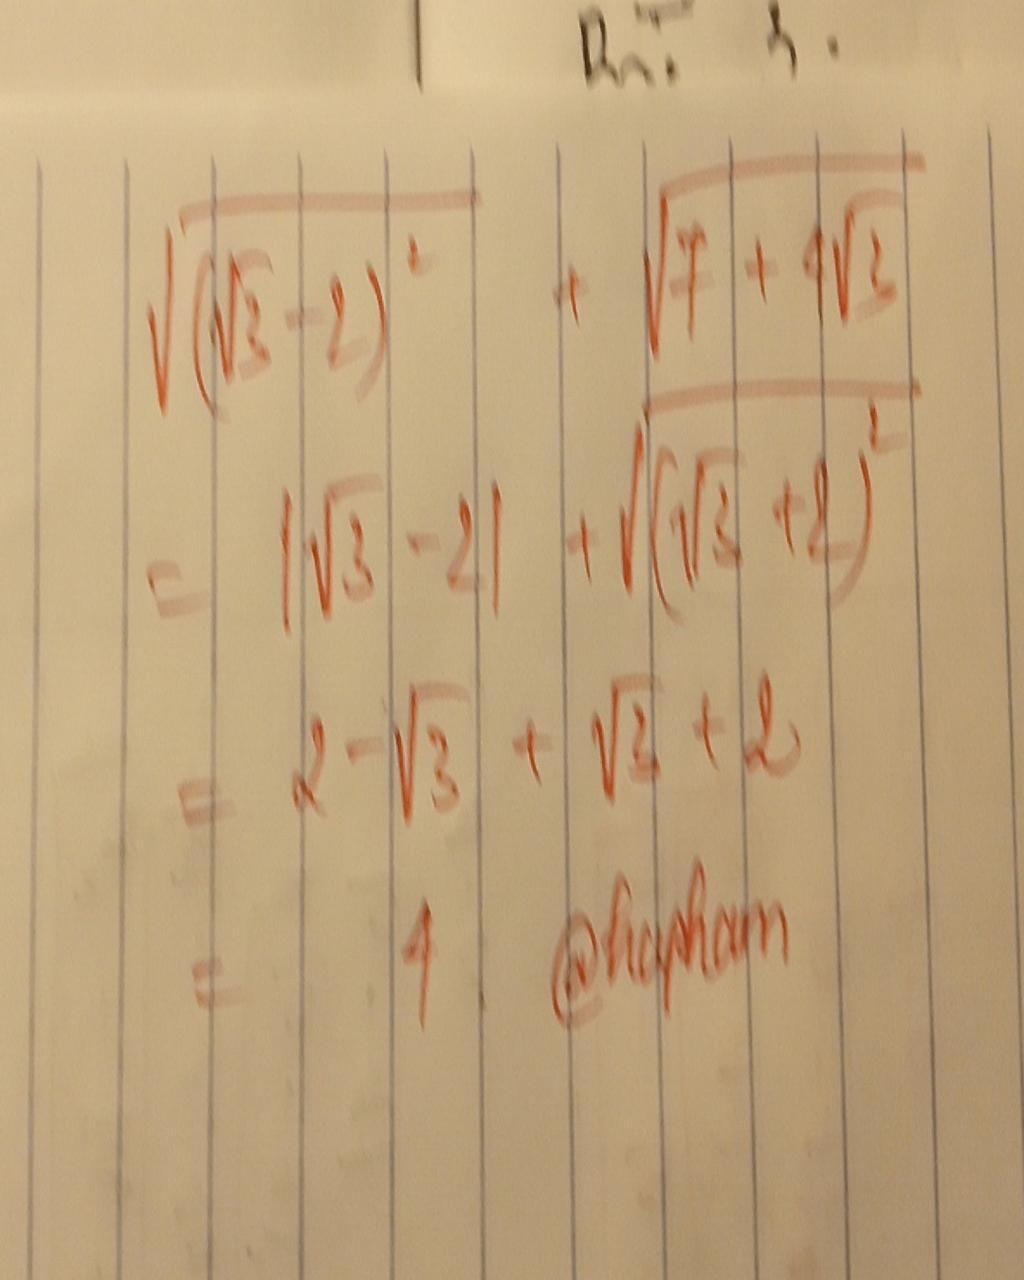 √(√3 - 2)² + √7 + 4√3
= |√3 - 2| + √(√3 + 2)²
= 2 - √3 + √3 + 2
= 4 @hapham